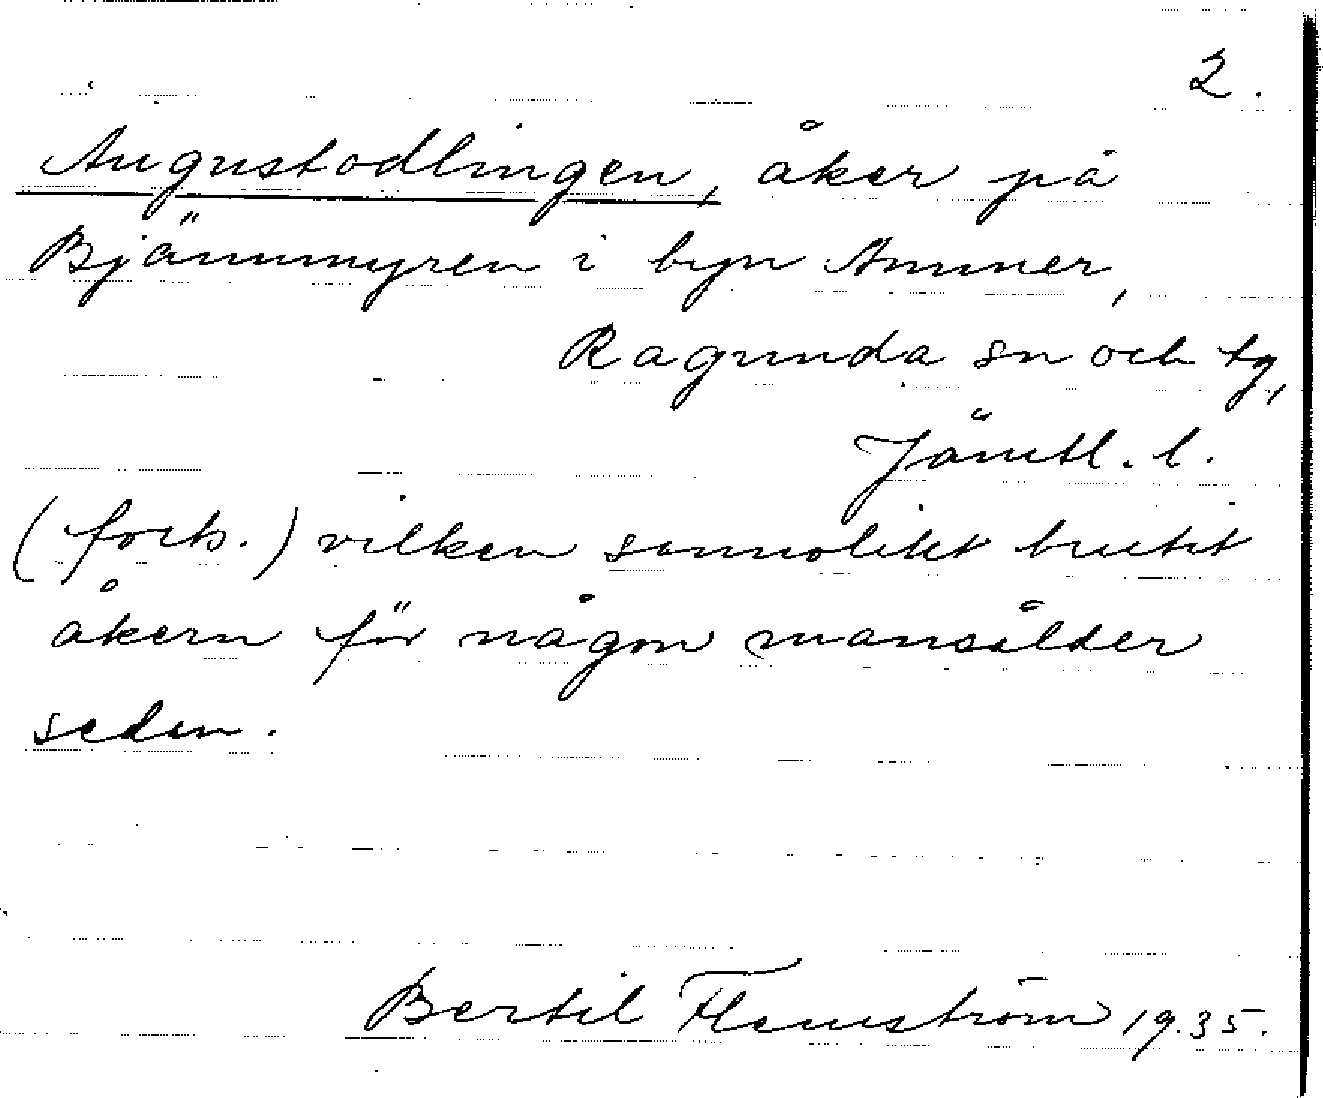 2.
Augustodlingen, åker på
Bjännmyren i byn Ammer,
Ragunda sn och tg,
Jämtl. l.
(forts.) vilken sannolikt brutit
åkern för någon mansålder
sedan.
Bertil Flemström 1935.